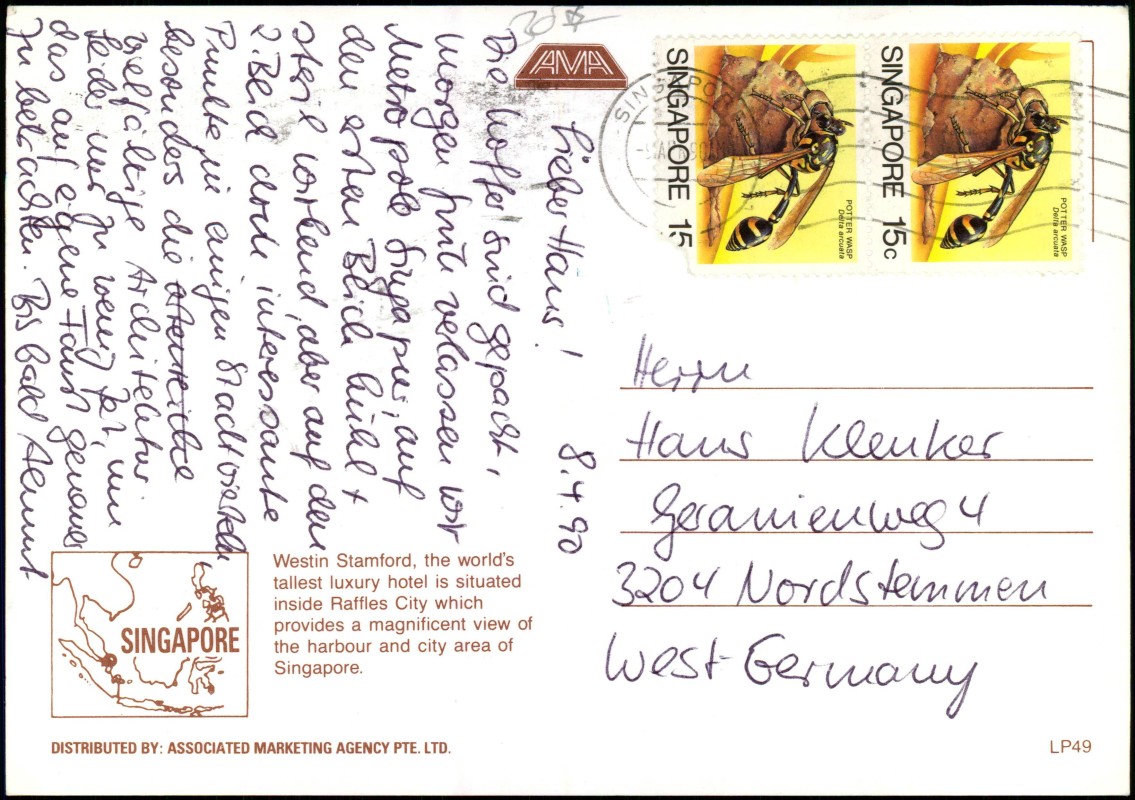 AMA
Lieber Hans! 8.4.90
Die Koffer sind gepackt,
morgen früh verlassen wir
Metropole Singapur, auf
den ersten Blick kühl +
steril wirkend, aber auf den
2. Blick doch interessante
Punkte in einigen Stadtvierteln
besonders die
vielfältige Architektur
leider nur zu wenig Zeit, um
das auf eigene Faust genauer
zu betrachten. Bis bald
SINGAPORE 15
POTTER WASP
Delta arcuata
SINGAPORE 15c
POTTER WASP
Delta arcuata
SINGAPOR
90
Herrn
Hans Klenker
Geranienweg 4
3204 Nordstemmen
West-Germany
SINGAPORE
Westin Stamford, the world's
tallest luxury hotel is situated
inside Raffles City which
provides a magnificent view of
the harbour and city area of
Singapore.
DISTRIBUTED BY: ASSOCIATED MARKETING AGENCY PTE. LTD.
LP49